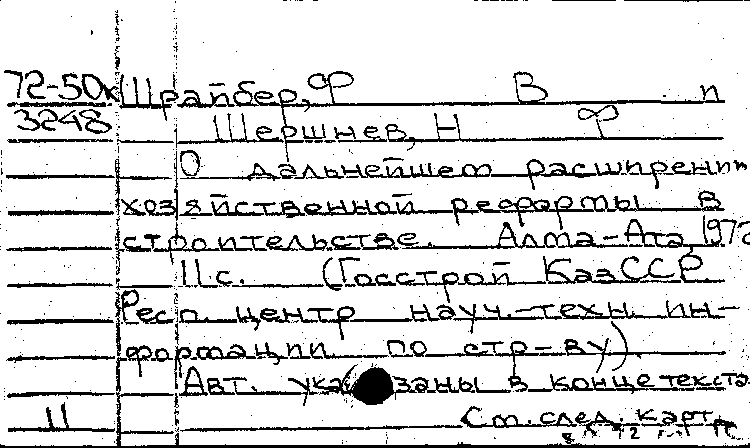 72-50к Шрайбер, Ф В п
3248 Шершнев, Н Ф
О дальнейшем расширении
хозяйственной реформы в
строительстве. Алма-Ата, 1972
11 с. (Госстрой КазССР
Респ. центр науч.-техн. ин-
формации по стр-ву).
Авт. указаны в конце текста
11 См. след. карт.